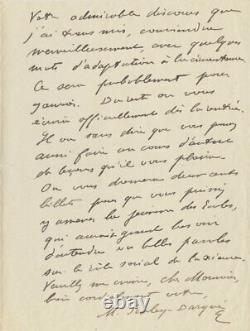 Votre admirable discours que
j'ai sous mes, conviendra
merveilleusement, avec quelques
mots d'adaptation à la circonstance
Ce sera probablement pour
janvier. Doivent on vous
écrira officiellement dès la rentrée.
Il va sans dire que vous pouvez
aussi faire un cours d'autant
de leçons qu'il vous plaira.
On vous donnera deux cents
billets pour que vous puissiez
y amener les jeunes des Écoles,
qui auraient grand besoin
d'entendre vos belles paroles
sur le rôle social de la science.
Veuillez me croire, cher Monsieur,
bien votre
M
www.travauxdecoutures.com